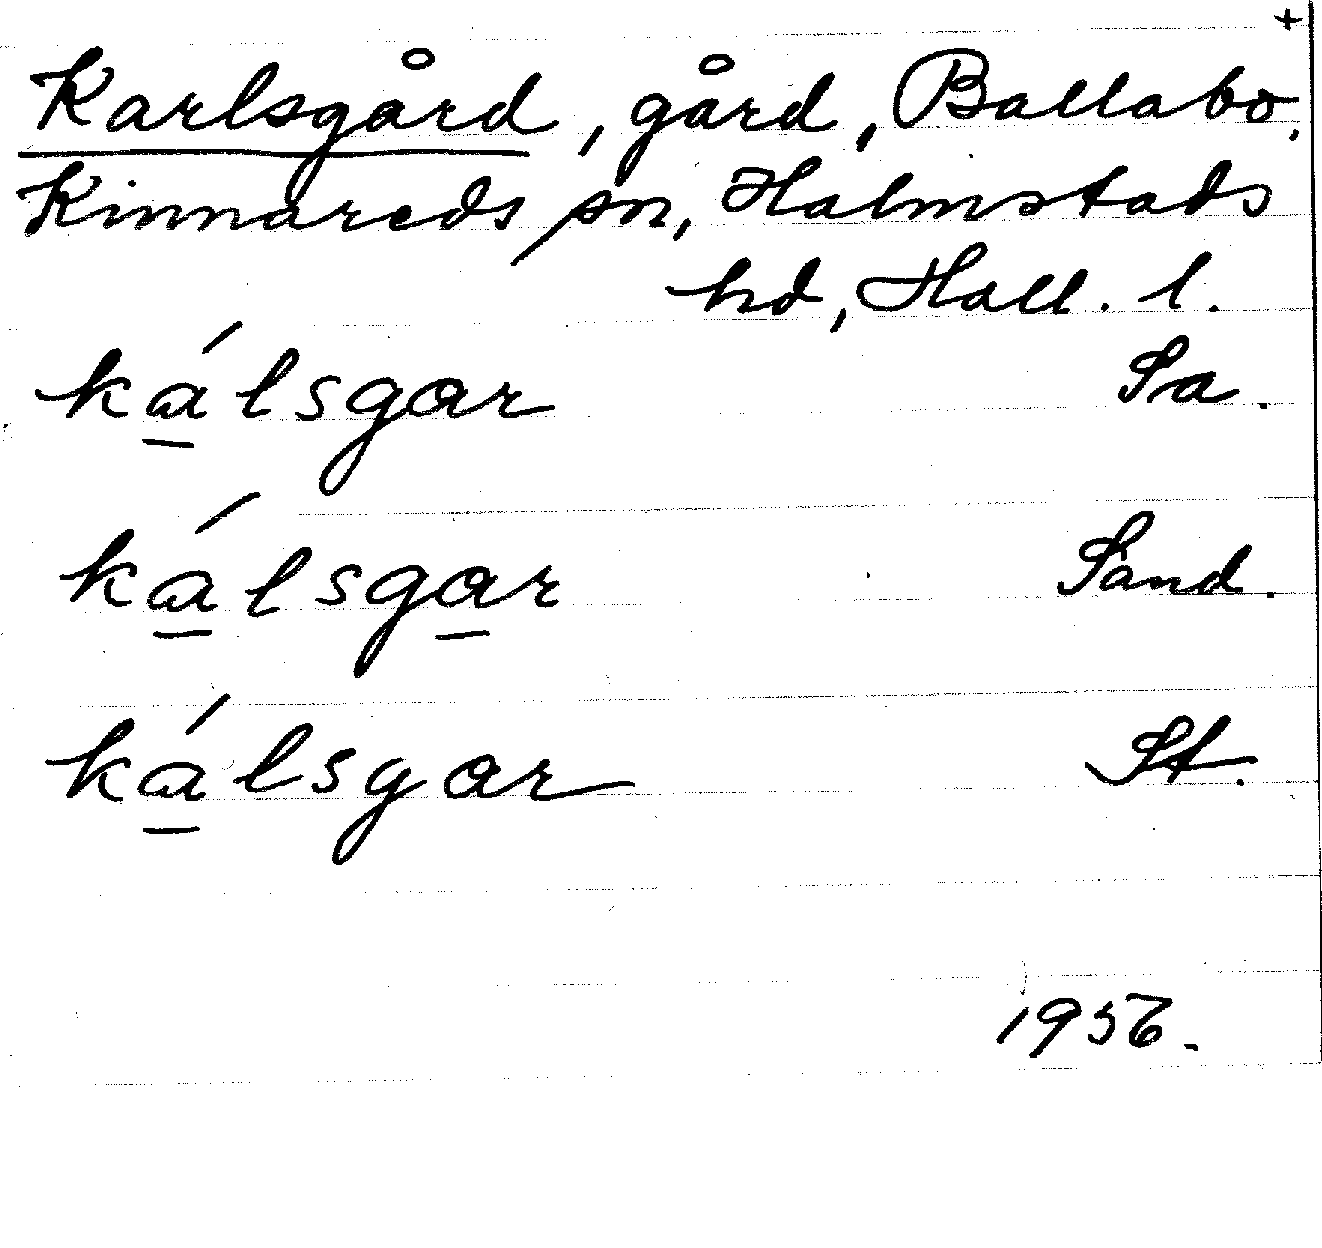 +
Karlsgård, gård, Ballabo,
Kinnareds sn, Halmstads
hd, Hall. l.
ká̱lsgar Sa.
ká̱lsga̱r Sand.
ká̱lsgar St.
1956.